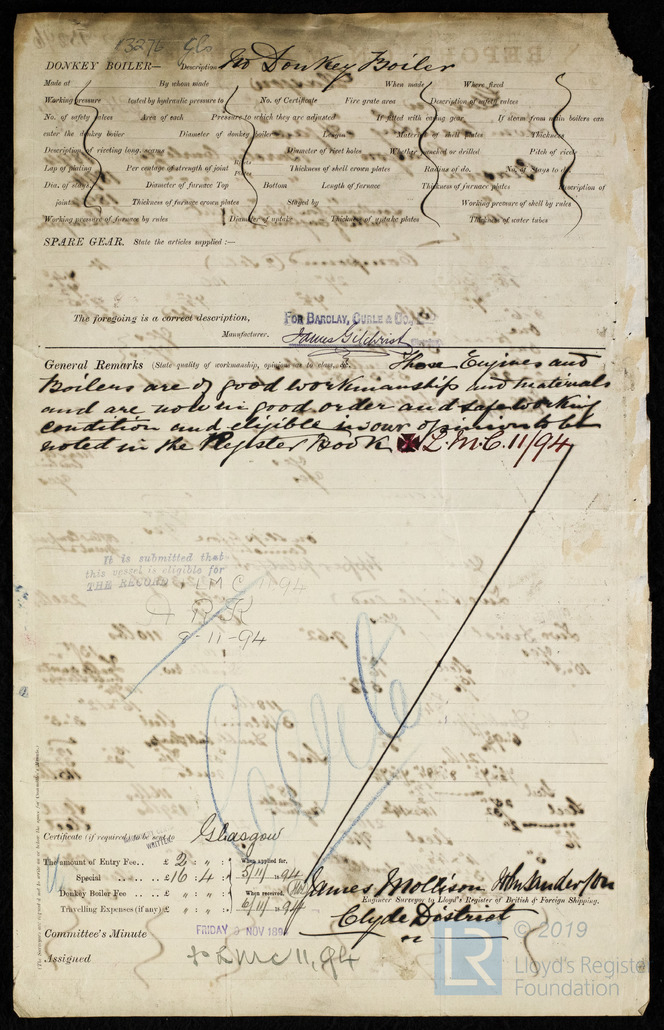 13276 Gls
DONKEY BOILER— Description No Donkey Boiler
Made at By whom made When made Where fixed
Working pressure tested by hydraulic pressure to No. of Certificate Fire grate area Description of safety valves
No. of safety valves Area of each Pressure to which they are adjusted If fitted with easing gear If steam from main boilers can
enter the donkey boiler Diameter of donkey boiler Length Material of shell plates Thickness
Description of riveting long. seams Diameter of rivet holes Whether punched or drilled Pitch of rivets
Lap of plating Per centage of strength of joint Rivets Plates Thickness of shell crown plates Radius of do. No. of Stays to do.
Dia. of stays. Diameter of furnace Top Bottom Length of furnace Thickness of furnace plates Description of
joint Thickness of furnace crown plates Stayed by Working pressure of shell by rules
Working pressure of furnace by rules Diameter of uptake Thickness of uptake plates Thickness of water tubes
SPARE GEAR. State the articles supplied :—
The foregoing is a correct description,
FOR BARCLAY, CURLE & CO.,
Manufacturer. James Gilchrist
General Remarks (State quality of workmanship, opinions as to class, &c. These Engines and
Boilers are of good workmanship and materials
and are now in good order and safe working
condition and eligible in our opinion to be
noted in the Register Book ✠ L.M.C. 11/94
It is submitted that
this vessel is eligible for
THE RECORD + LMC 11.94
9-11-94
Certificate (if required) to be sent to Glasgow
The amount of Entry Fee .. £ 2 : " : " When applied for,
Special .. £ 16 : 4 : " 5/11/1894
Donkey Boiler Fee .. £ " : " When received,
Travelling Expenses (if any) £ " : " 6/11/94
James Mollison John Sanderson
Engineer Surveyor to Lloyd's Register of British & Foreign Shipping.
Clyde District
Committee's Minute FRIDAY 9 NOV 1894
Assigned + LMC 11,94
LR © 2019
Lloyd's Register
Foundation